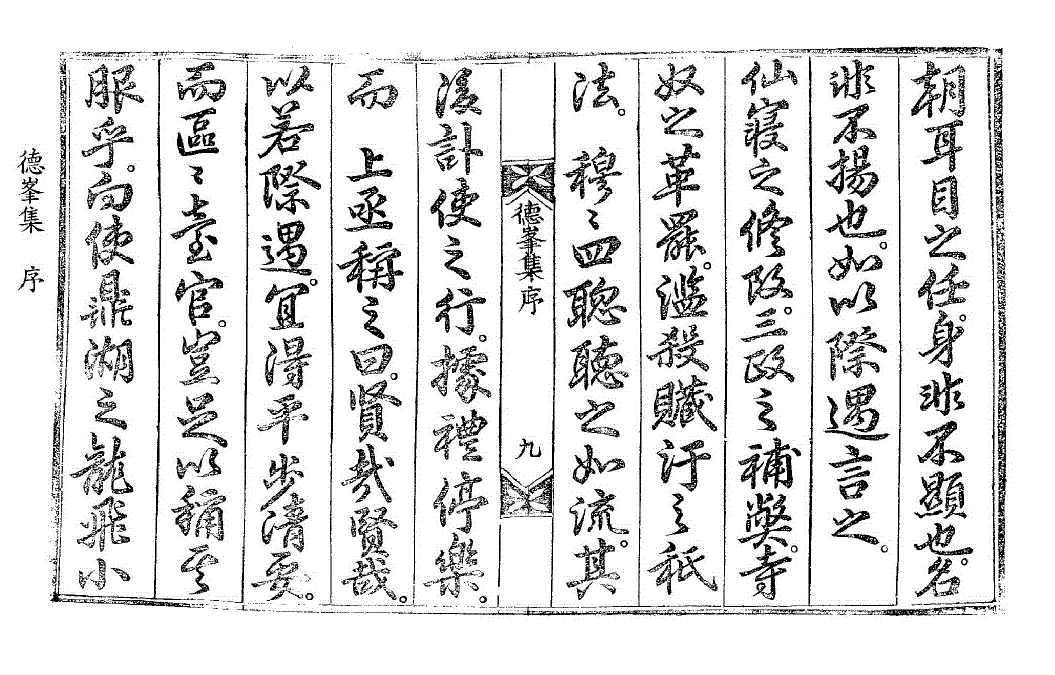 朝耳目之任。身非不顯也。名
非不揚也。如以際遇言之。
仙寢之修改。三政之補獘。寺
奴之革罷。濫殺贓汙之祇
法。穆〻四聰聽之如流。其
德峯集序
九
後計使之行。據禮停樂。
而 上亟稱之曰。賢哉賢哉。
以若際遇。宜得平步清要。
而區〻臺官。豈足以稱其
服乎。向使鼎湖之龍飛小
德峯集 序